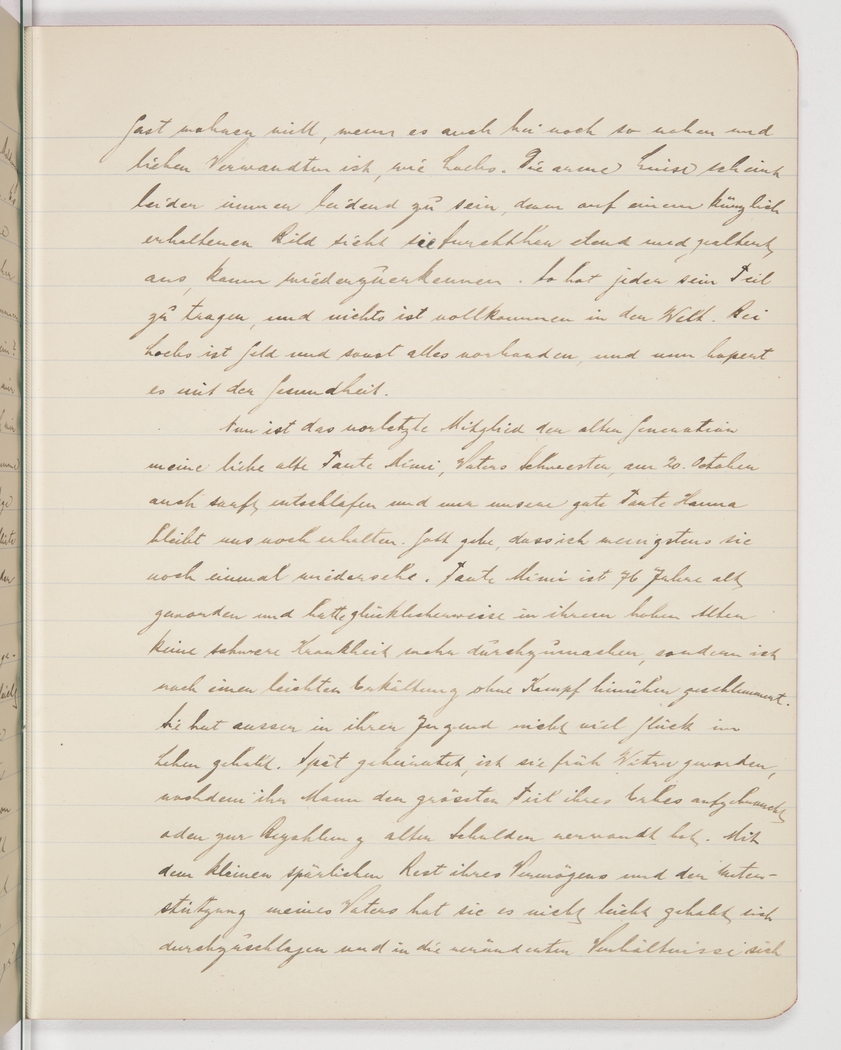 Gast wohnen will, wenn es auch bei noch so nahen und
lieben Verwandten ist, wie Hochs. Die arme Luise scheint
leider immer leidend zu sein, denn auf einem kürzlich
erhaltenen Bild sieht sie furchtbar elend und gealtert
aus, kaum wiederzuerkennen. So hat jeder sein Teil
zu tragen, und nichts ist vollkommen in der Welt. Bei
Hochs ist Geld und sonst alles vorhanden, und nun hapert
es mit der Gesundheit.
Nun ist das vorletzte Mitglied der alten Generation
meine liebe alte Tante Mimi, Vaters Schwester, am 20. Oktober
auch sanft entschlafen und nur unsere gute Tante Hanna
bleibt uns noch erhalten. Gott gebe, dass ich wenigstens sie
noch einmal wiedersehe. Tante Mimi ist 76 Jahre alt
geworden und hatte glücklicherweise in ihrem hohen Alter
keine schwere Krankheit mehr durchzumachen, sondern ist
nach einer leichten Erkältung ohne Kampf hinüber geschlummert.
Sie hat ausser in ihrer Jugend nicht viel Glück im
Leben gehabt. Spät geheiratet, ist sie früh Witwe geworden,
nachdem ihr Mann den grössten Teil ihres Erbes aufgebraucht
oder zur Bezahlung alter Schulden verwandt hat. Mit
dem kleinen spärlichen Rest ihres Vermögens und der Unter-
stützung meines Vaters hat sie es nicht leicht gehabt sich
durchzuschlagen und in die veränderten Verhältnisse sich